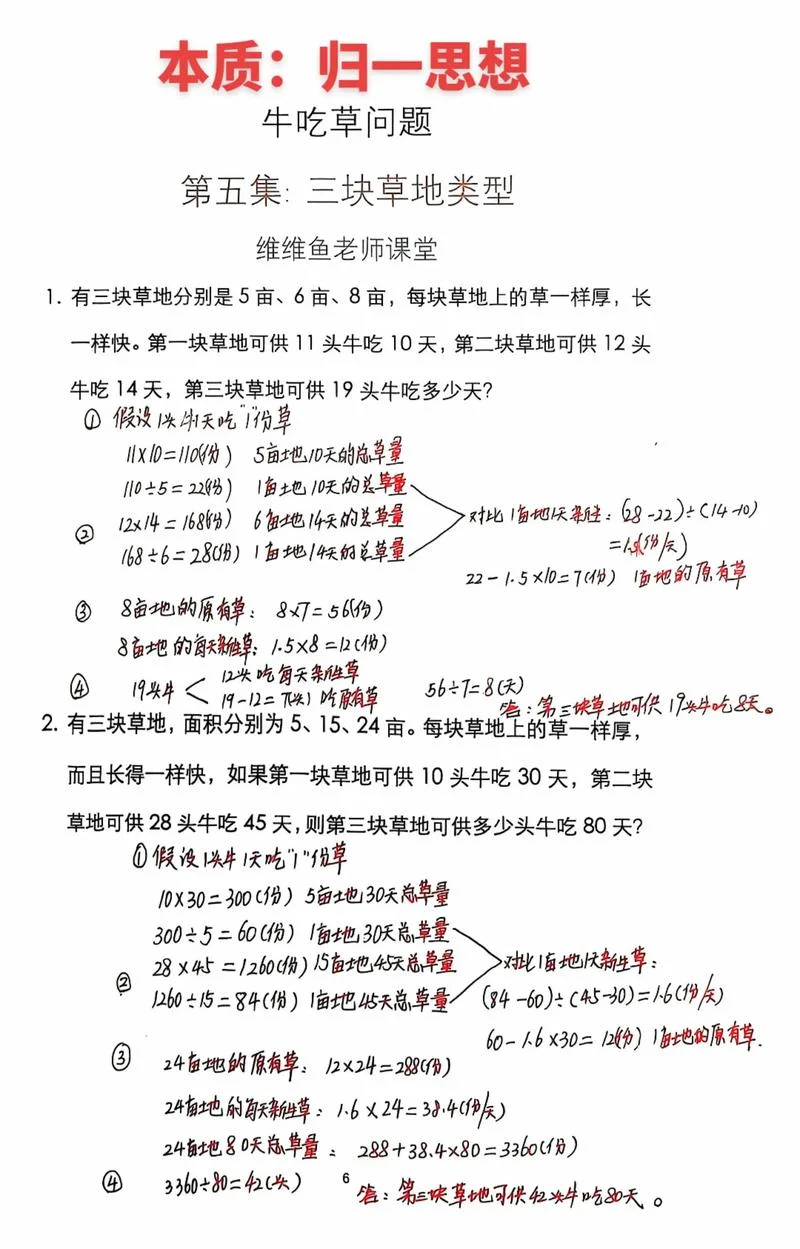 本质：归一思想
牛吃草问题
第五集：三块草地类型
维维鱼老师课堂
1. 有三块草地分别是5亩、6亩、8亩，每块草地上的草一样厚，长
一样快。第一块草地可供11头牛吃10天，第二块草地可供12头
牛吃14天，第三块草地可供19头牛吃多少天？
① 假设1头牛1天吃"1"份草
11×10=110(份) 5亩地10天的总草量
110÷5=22(份) 1亩地10天的总草量
② 12×14=168(份) 6亩地14天的总草量
168÷6=28(份) 1亩地14天的总草量
对比1亩地1天新生：(28-22)÷(14-10)
=1.5(份/天)
22-1.5×10=7(份) 1亩地的原有草
③ 8亩地的原有草：8×7=56(份)
8亩地的每天新生草：1.5×8=12(份)
④ 19头牛
12头吃每天新生草
19-12=7(头)吃原有草
56÷7=8(天)
答：第三块草地可供19头牛吃8天。
2. 有三块草地，面积分别为5、15、24亩。每块草地上的草一样厚，
而且长得一样快，如果第一块草地可供10头牛吃30天，第二块
草地可供28头牛吃45天，则第三块草地可供多少头牛吃80天？
① 假设1头牛1天吃"1"份草
10×30=300(份) 5亩地30天总草量
300÷5=60(份) 1亩地30天总草量
② 28×45=1260(份) 15亩地45天总草量
1260÷15=84(份) 1亩地45天总草量
对比1亩地1天新生草：
(84-60)÷(45-30)=1.6(份/天)
60-1.6×30=12(份) 1亩地的原有草.
③ 24亩地的原有草：12×24=288(份)
24亩地的每天新生草：1.6×24=38.4(份/天)
24亩地80天总草量：288+38.4×80=3360(份)
④ 3360÷80=42(头)
6
答：第三块草地可供42头牛吃80天。